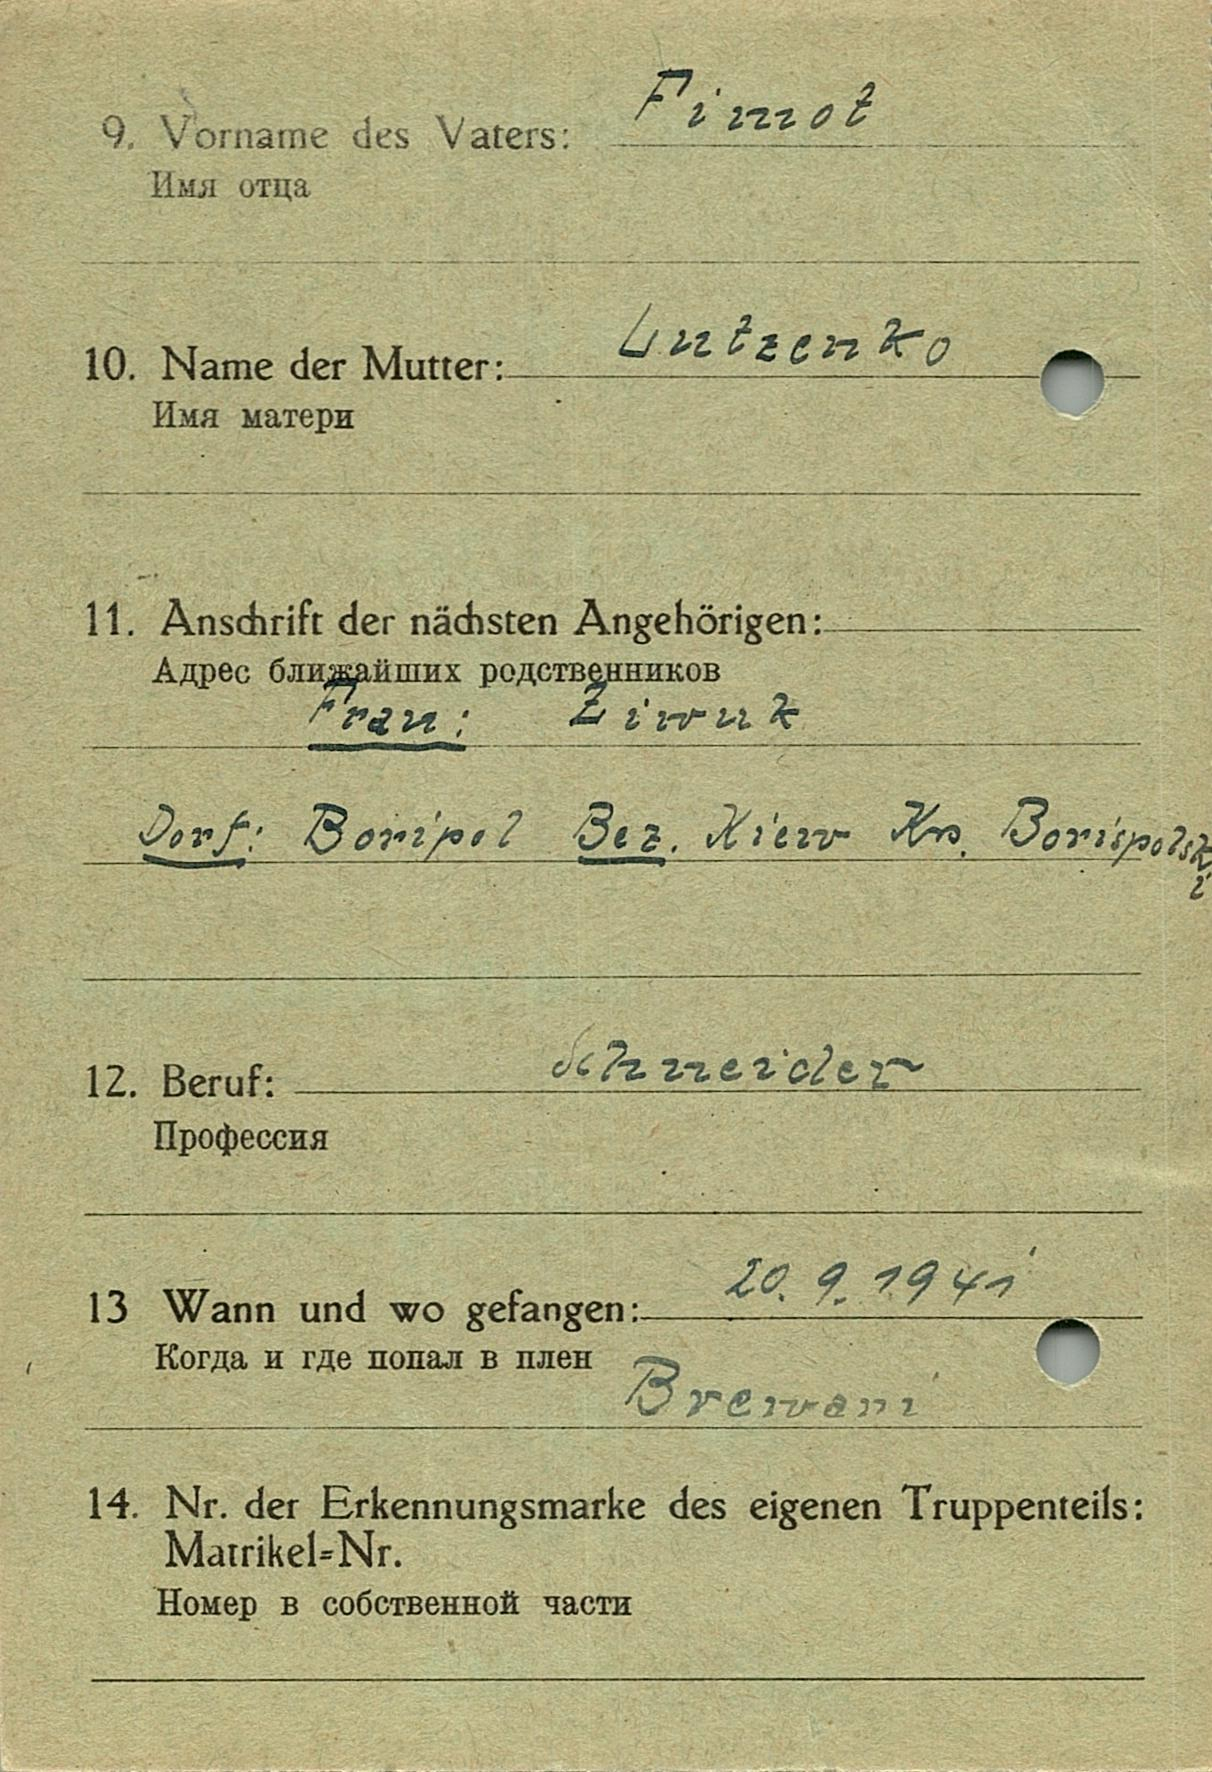 9. Vorname des Vaters: Fimot
Имя отца
10. Name der Mutter: Lutzenko
Имя матери
11. Anschrift der nächsten Angehörigen:
Адрес ближайших родственников
Frau: Ziwuk
Dorf: Boripol Bez. Kiew Krs. Borispolski
12. Beruf: Schneider
Профессия
13 Wann und wo gefangen: 20. 9. 1941
Когда и где попал в плен
Brewari
14. Nr. der Erkennungsmarke des eigenen Truppenteils:
Matrikel=Nr.
Номер в собственной части